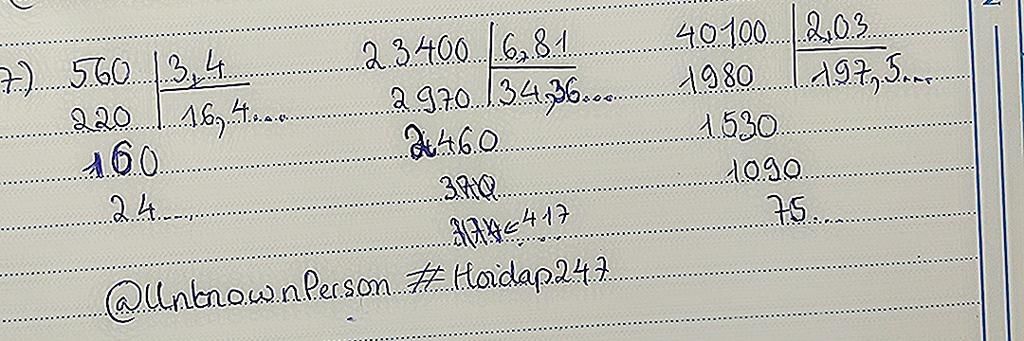 7) 560 3,4 23400 6,81 40100 2,03
220 16,4... 2970 34,36... 1980 197,5...
160 2460 1530
24.... 1090
417 75....
@UnknownPerson #Hoidap247